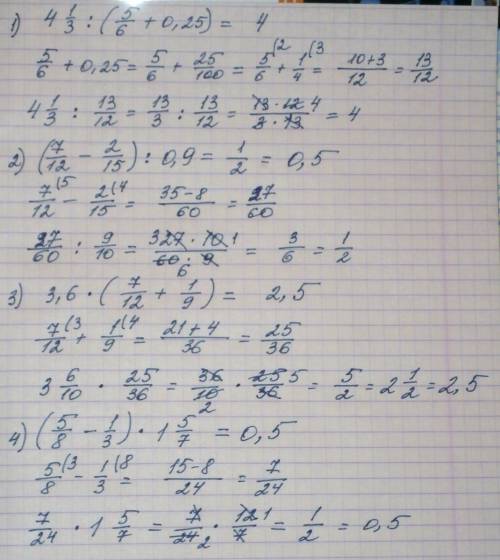 1) 4 1/3 : (5/6 + 0,25) = 4
5/6 + 0,25 = 5/6 + 25/100 = 5/6 (2 + 1/4 (3 = 10+3/12 = 13/12
4 1/3 : 13/12 = 13/3 : 13/12 = 13·12 4/3·13 = 4
2) (7/12 - 2/15) : 0,9 = 1/2 = 0,5
7/12 (5 - 2/15 (4 = 35-8/60 = 27/60
27/60 : 9/10 = 3 27·10 1/60·9 6 = 3/6 = 1/2
3) 3,6 · (7/12 + 1/9) = 2,5
7/12 (3 + 1/9 (4 = 21+4/36 = 25/36
3 6/10 · 25/36 = 36/10 2 · 25 5/36 = 5/2 = 2 1/2 = 2,5
4) (5/8 - 1/3) · 1 5/7 = 0,5
5/8 (3 - 1/3 (8 = 15-8/24 = 7/24
7/24 · 1 5/7 = 7/24 2 · 12 1/7 = 1/2 = 0,5